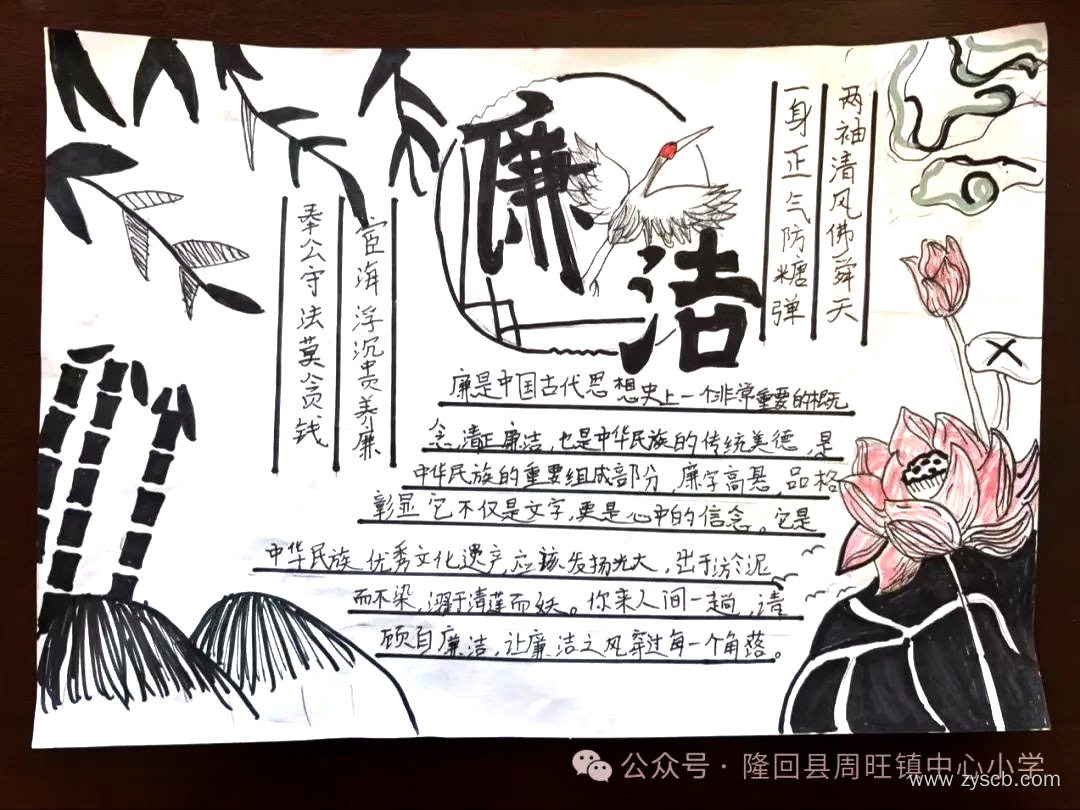 廉洁
两袖清风佛舜天
一身正气防糖弹
宦海浮沉贵养廉
奉公守法莫贪钱
廉是中国古代思想史上一个非常重要的概
念,清正廉洁,也是中华民族的传统美德,是
中华民族的重要组成部分,廉字高悬,品格
彰显它不仅是文字,更是心中的信念。它是
中华民族优秀文化遗产,应该发扬光大,出于淤泥
而不染,濯于清莲而妖。你来人间一趟,请
顾自廉洁,让廉洁之风穿过每一个角落。
公众号·隆回县周旺镇中心小学
www.zyscb.com